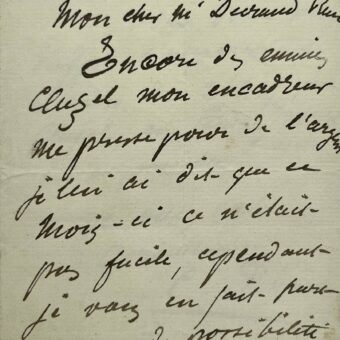 Mon cher Mr Durand Rue
Encore des ennuis
Cluzel mon encadreur
me presse pour de l'argen
je lui ai dit que ce
Mois-ci ce n'était
pas facile, cependant
je vous en fait part
possibilité